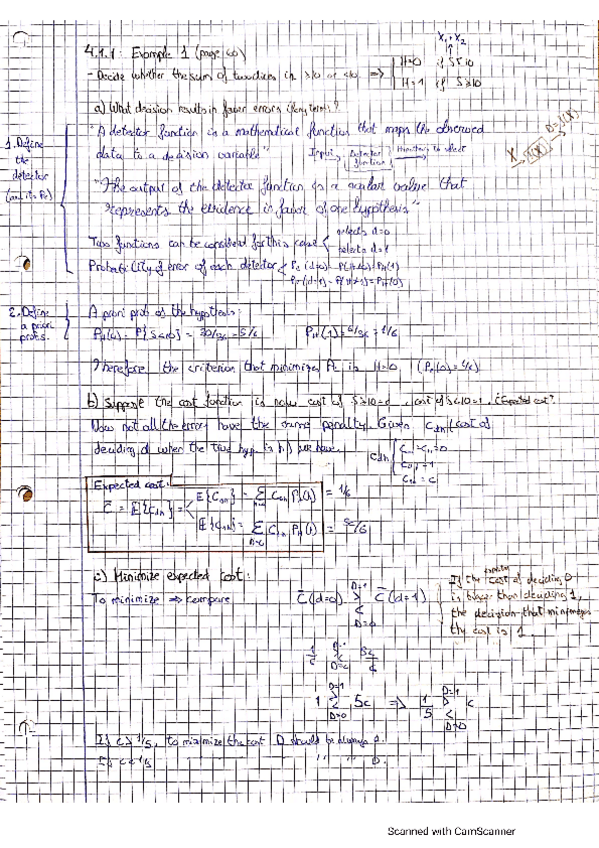 X₁+X₂
4.1.1: Example 1 (page 60)
- Decide whether the sum of two dices is ≥10 or <10 ⇒ { H=0 if S<10
H=1 if S≥10
a) What decision results in fewer errors (long term)?
1. Define the detector (and its Pe)
"A detector function is a mathematical function that maps the observed
data to a decision variable"
Input → Detector function →
"The output of the detector function is a scalar value that
represents the evidence in favor of one hypothesis"
Two functions can be considered for this case { selects d=0
selects d=1
Probability of error of each detector
2. Define a priori probs.
A priori prob. of the hypothesis:
P_H(0) = P{S<10} = 30/36 = 5/6 P_H(1) = 6/36 = 1/6
Therefore the criterion that minimizes Pe is H=0 (Pe(0)=1/6)
b) Suppose the cost function is now cost of
Now not all the errors have the same penalty. Given C_dh (cost of
deciding d when the true hyp. is h) we have:
C_dh { C₀₀=C₁₁=0
C₀₁=1
C₁₀=c
Expected cost:
= 1/6
= 5c/6
c) Minimize expected cost:
To minimize ⇒ compare C̄(d=0) ≷ C̄(d=1)
D=1
D=0
If the cost of deciding 0
is bigger than deciding 1,
the decision that minimizes
the cost is 1.
D=1
1 ≷ 5c ⇒ 1/5 ≷ c
D=0
If c>1/5, to minimize the cost D should be always 0.
If c<1/5 " " "
Scanned with CamScanner